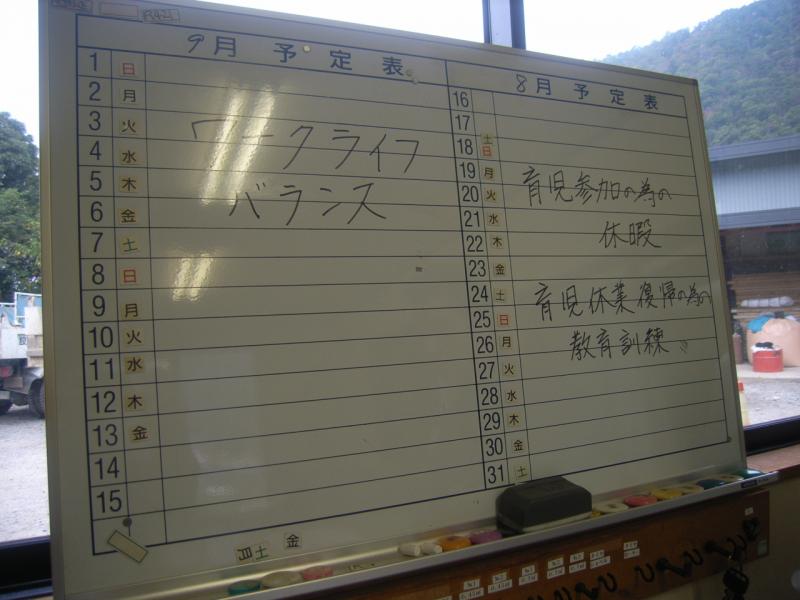 9月 予定表
1 日
2 月
3 火
4 水
5 木
6 金
7 土
8 日
9 月
10 火
11 水
12 木
13 金
14
15
ワークライフ
バランス
8月 予定表
16
17 土
18 日
19 月
20 火
21 水
22 木
23 金
24 土
25 日
26 月
27 火
28 水
29 木
30 金
31 土
育児参加の為の
休暇
育児休業復帰の為の
教育訓練
日 土 金